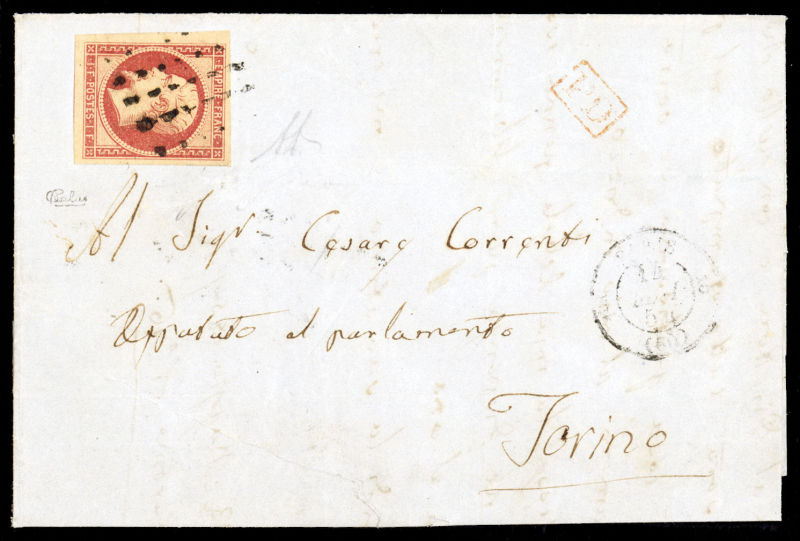 EMPIRE FRANC.
1 F. POSTES. 1 F.
P.D.
Al Sigr Cesare Correnti
PARIS
(60)
Deputato al parlamento
Torino